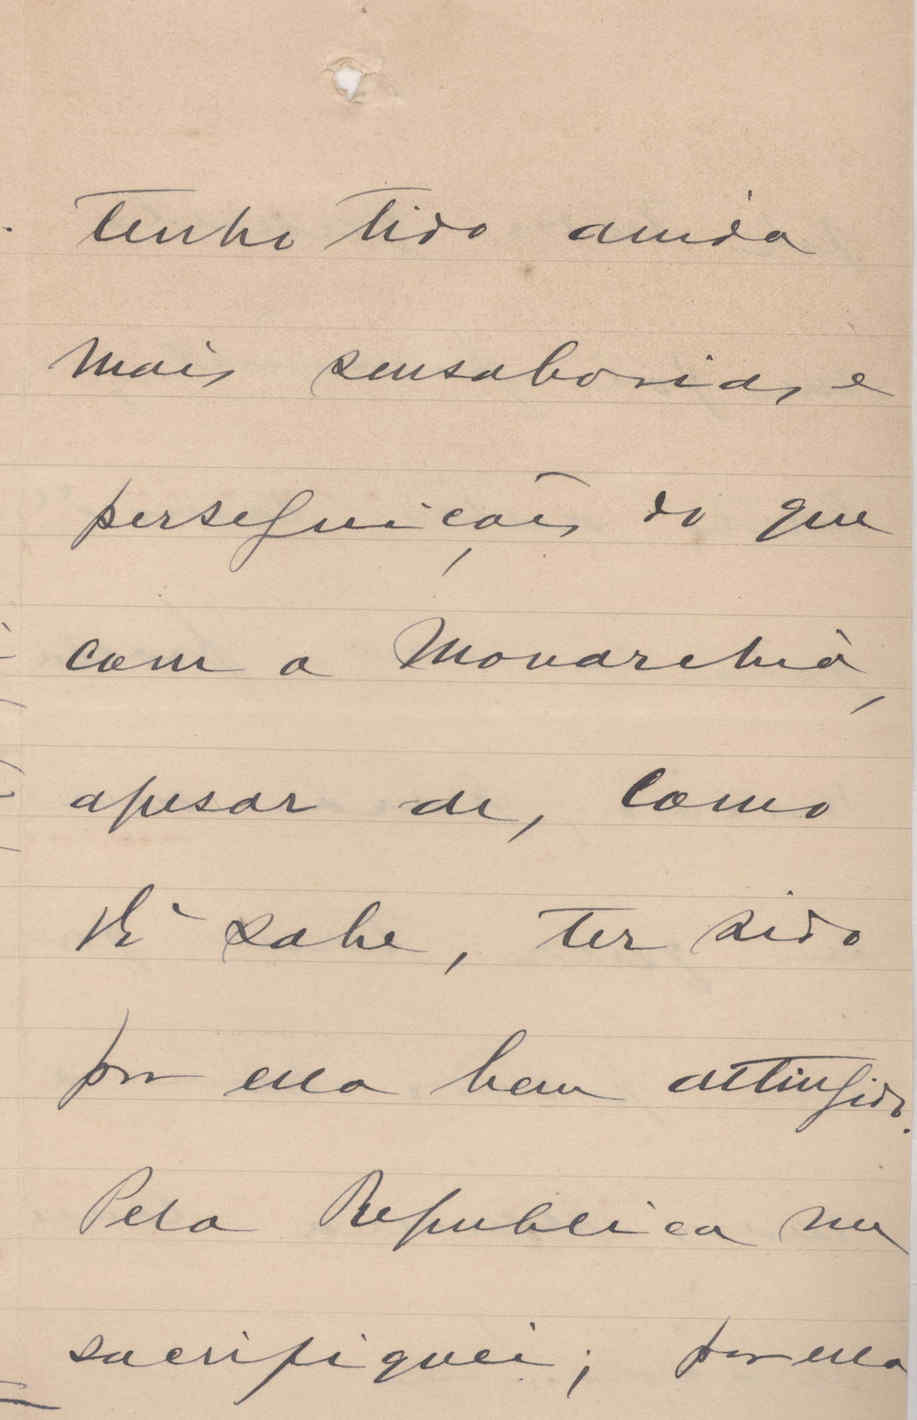 tenho tido ainda
mais sensaborias e
perseguições do que
com a Monarchia,
apesar de, como
sabe, ter sido
por ella bem attingido.
Pela Republica me
sacrifiquei; por ella